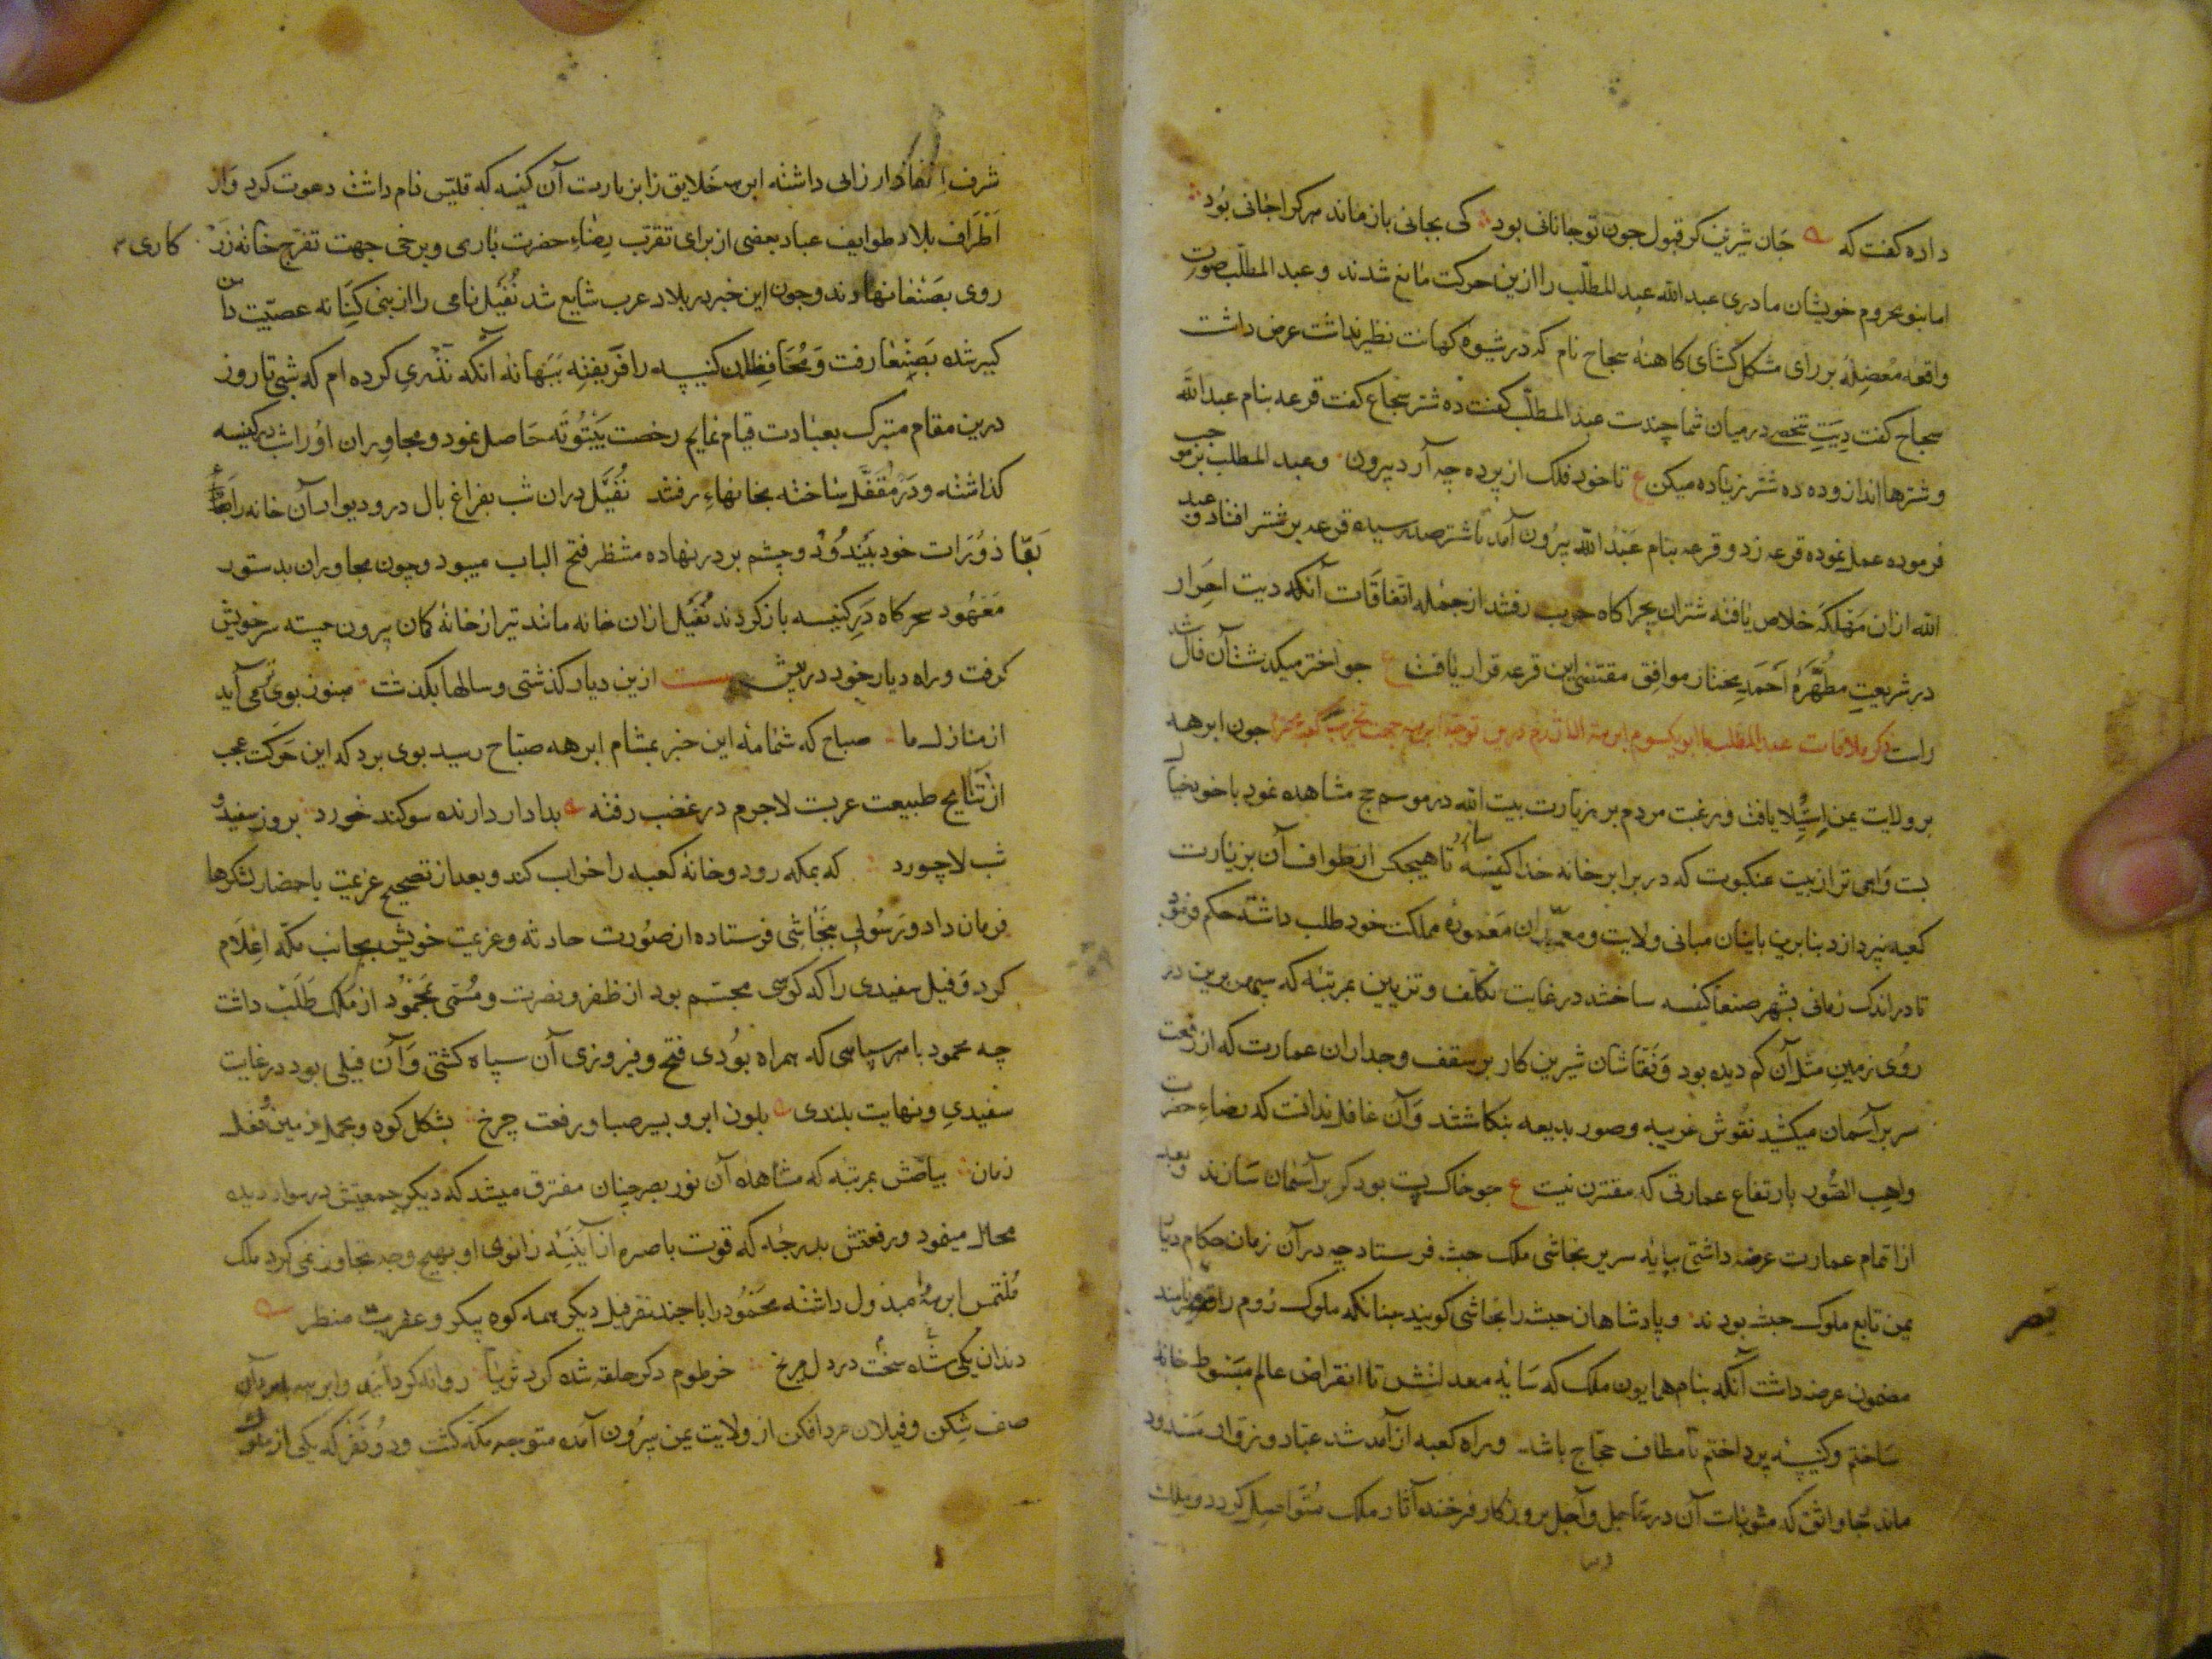 داده کفت که جان شیرین کر قبول جون تو جانانی بود کی بجانی باز ماند هرکرا جانی بود
اما بنو محزوم خویشان مادری عبد الله عبد المطلب را ازین حرکت مانع شدند و عبد المطلب صورت
واقعه معضله بر رای مشکل کشای کاهنه سجاح نام که در شیوه کهانت نظیر نداشت عرض داشت
سجاح کفت دیت شخصی در میان شما چندست عبد المطلب کفت ده شتر سجاح کفت قرعه بنام عبد الله
و شترها انداز و ده ده شتر زیاده میکن ع تا خود فلک از پرده چه آرد بیرون و عبد المطلب بر موجب
فرموده عمل نموده قرعه زد و قرعه بنام عبد الله بیرون آمد تا شتر صد رسیده قرعه بر شتر افتاد و عبد
الله ازان مهلکه خلاص یافته شتران بچراکاه جوب رفتند از جمله اتفاقات آنکه دیت احرار
در شریعت مطهره احمد مختار موافق مقتضی این قرعه قرار یافت ع جو اختر میکدشت آن فال شد
راست ذکر ملاقات عبد المطلب با ابو یکسوم ابرهة الاشرم در توجه ابرهه جهت تخریب کعبه جون ابرهه
بر ولایت یمن استیلا یافت و رغبت مردم بر زیارت بیت الله در موسم حج مشاهده نمود با خود خیال
بست واهی تر از بیت عنکبوت که در برابر خانه خدا کنیسه سازد تا هیجکس از طواف آن بزیارت
کعبه نپردازد بنابرین بانیان مبانی ولایت و معماران معموره مملکت خود طلب داشته حکم فرمود
تا در اندک زمانی بشهر صنعا کنیسه ساختند در غایت تکلف و تزیین بمرتبه که سپهر برین در
روی زمین مثل آن کم دیده بود و نقاشان شیرین کار بر سقف و جداران عمارت که از رفعت
سر بر آسمان میکشید نقوش غریبه و صور بدیعه بنکاشتند و آن غافل ندانست که رضاء حضرت
واهب الصور بارتفاع عمارتی که مقترن نیست ع جو خاک پست بود کر بر آسمان سازند و بعد
از اتمام عمارت عرضه داشتی بپایه سریر نجاشی ملک حبشه فرستاد چه در آن زمان حکام دیار
یمن تابع ملوک حبشه بودند و پادشاهان حبشه را نجاشی کویند جنانکه ملوک روم را قیصر نامند
قیصر
مضمون عرضه داشت آنکه بنام همایون ملک که سایه معدلتش تا انقراض عالم مبسوط خانه
ساختم و کنیسه پرداختم تا مطاف حجاج باشد و راه کعبه از آمد شد عباد و زوار مسدود
ماند رجا واثق که مثوبات آن در عاجل و آجل بروزکار فرخنده آثار ملک متواصل کردد و ملک
شرف انفاذ ارزانی داشته ابرهه خلایق را بزیارت آن کنیسه که قلیس نام داشت دعوت کرد و از
اطراف بلاد طوایف عباد بعضی از برای تقرب برضاء حضرت باری و برخی جهت تفرج خانه زر کاری
روی بصنعا نهادند و جون این خبر در بلاد عرب شایع شد نفیل نامی را از بنی کنانه عصبیت دامن
کیر شده بصنعا رفت و محافظان کنیسه را فریفته ببهانه آنکه نذری کرده ام که شبی تا روز
درین مقام متبرک بعبادت قیام نمایم رخصت بیتوته حاصل نمود و مجاوران او را شب در کنیسه
کذاشته و در مقفل ساخته بخانهاء رفتند نفیل دران شب بفراغ بال در و دیوار آن خانه را بجا
بقاذورات خود بیندود و چشم بر در نهاده منتظر فتح الباب میبود و چون مجاوران بدستور
معهود سحرکاه در کنیسه باز کردند نفیل ازان خانه مانند تیر از خانه کمان بیرون جسته سر خویش
کرفت و راه دیار خود در پیش بیت ازین دیار کذشتی و سالها بکذشت هنوز بوی تو می آید
از منازل ما صباح که شمامه این خبر بمشام ابرهه صباح رسید بوی برد که این حرکت عجب
از نتایج طبیعت عربت لاجرم در غضب رفته بدادار دارنده سوکند خورد بروز سفید و
شب لاجورد که بمکه رود و خانه کعبه را خراب کند و بعد از تصحیح عزیمت باحضار لشکرها
فرمان داد و رسولی بنجاشی فرستاده از صورت حادثه و عزیمت خویش بجانب مکه اعلام
کرد و فیل سفیدی را که کوهی مجسم بود از ظفر و نصرت و مسمی بمحمود از ملک طلب داشت
چه محمود با هر سپاهی که همراه بودی فتح و فیروزی آن سپاه کشتی و آن فیلی بود در غایت
سفیدی و نهایت بلندی بلون ابر و بسیر صبا و رفعت چرخ بشکل کوه و بحمل زمین و فعل
زمان بیاضش بمرتبه که مشاهده آن نور بصر چنان مفترق میشد که دیکر جمعیتش در سواد دیده
محال مینمود و رفعتش بدرجه که قوت باصره از آینه زانوی او بهیچ وجه تجاوز نمی کرد ملک
ملتمس ابرهه مبذول داشته محمود را با جند نفر فیل دیکر همه کوه پیکر و عفریت منظر
دندان یکی شده سخت در دل مریخ خرطوم دکر حلقه شده کرد ثریا روانه کردانید و ابرهه با
صف شکن و فیلان مرد افکن از ولایت یمن بیرون آمده متوجه مکه کشت و دو نفر که یکی از ملوک